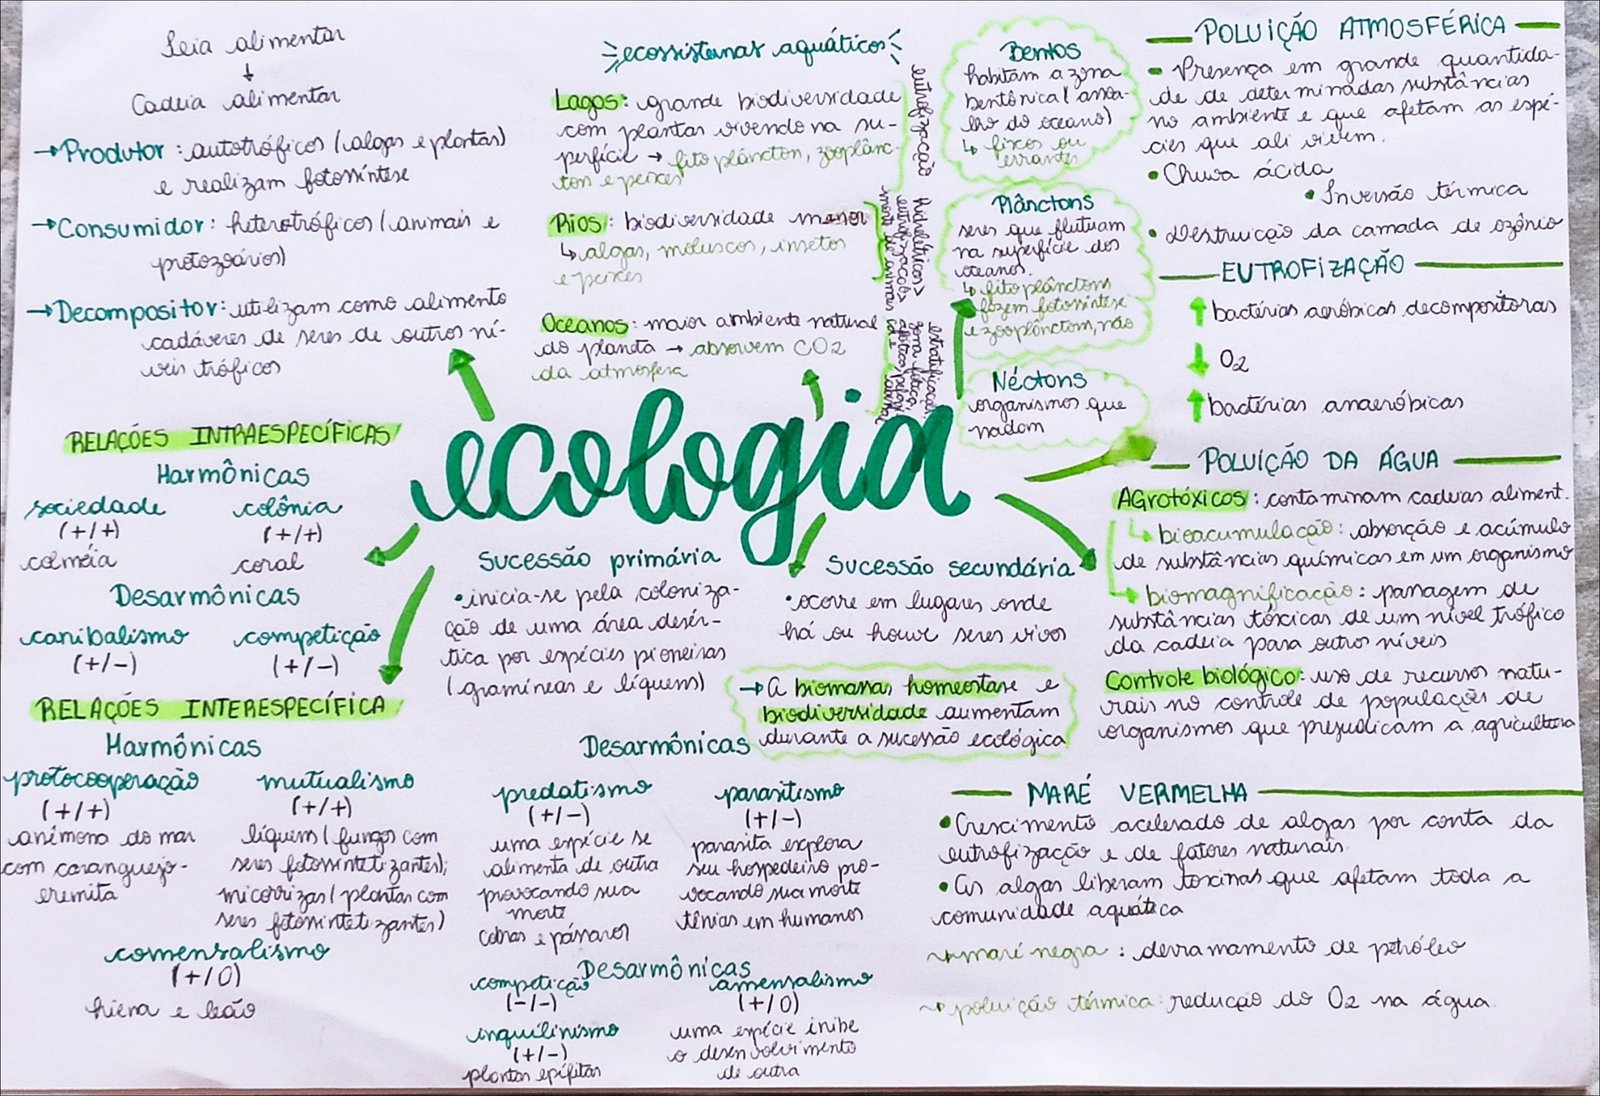 Teia alimentar
↓
Cadeia alimentar
→ Produtor: autotróficos (algas e plantas)
e realizam fotossíntese
→ Consumidor: heterotróficos (animais e
protozoários)
→ Decompositor: utilizam como alimento
cadáveres de seres de outros ní-
veis tróficos
ecossistemas aquáticos
Lagos: grande biodiversidade
com plantas vivendo na su-
perfície → fitoplâncton, zooplânc-
ton e peixes
Rios: biodiversidade menor
↳ algas, moluscos, insetos
e peixes
Oceanos: maior ambiente natural
do planeta → absorvem CO2
da atmosfera
eutrofização
hidrelétricas >
eutrofização >
morte de animais
estratificação,
zona fótica,
afótica,
Bentos
habitam a zona
bentônica (assoa-
lho do oceano)
↳ fixos ou
errantes
Plânctons
seres que flutuam
na superfície dos
oceanos.
↳ fitoplânctons
fazem fotossíntese
e zooplânctom, não
Néctons
organismos que
nadam
POLUIÇÃO ATMOSFÉRICA
• Presença em grande quantida-
de de determinadas substâncias
no ambiente e que afetam as espé-
cies que ali vivem.
• Chuva ácida
• Inversão térmica
• Destruição da camada de ozônio
EUTROFIZAÇÃO
↑ bactérias aeróbicas decompositoras
↓ O2
↑ bactérias anaeróbicas
POLUIÇÃO DA ÁGUA
AGROTÓXICOS: contaminam cadeias aliment.
↳ bioacumulação: absorção e acúmulo
de substâncias químicas em um organismo
→ biomagnificação: passagem de
substâncias tóxicas de um nível trófico
da cadeia para outros níveis
Controle biológico: uso de recursos natu-
rais no controle de populações de
organismos que prejudicam a agricultura
ecologia
RELAÇÕES INTRAESPECÍFICAS
Harmônicas
sociedade colônia
(+/+) (+/+)
colméia coral
Desarmônicas
canibalismo competição
(+/-) (+/-)
Sucessão primária
• inicia-se pela coloniza-
ção de uma área desér-
tica por espécies pioneiras
(gramíneas e líquens)
Sucessão secundária
• ocorre em lugares onde
há ou houve seres vivos
→ A biomassa homeostase e
biodiversidade aumentam
durante a sucessão ecológica
RELAÇÕES INTERESPECÍFICA
Harmônicas
protocooperação
(+/+)
anêmona do mar
com caranguejo-
eremita
mutualismo
(+/+)
líquens (fungos com
seres fotossintetizantes);
micorrizas (plantas com
seres fotossintetizantes)
comensalismo
(+/0)
hiena e leão
Desarmônicas
predatismo
(+/-)
uma espécie se
alimenta de outra
provocando sua
morte
cobras e pássaros
parasitismo
(+/-)
parasita explora
seu hospedeiro pro-
vocando sua morte
tênias em humanos
Desarmônicas
competição
(-/-)
inquilinismo
(+/-)
plantas epífitas
amensalismo
(+/0)
uma espécie inibe
o desenvolvimento
de outra
MARÉ VERMELHA
• Crescimento acelerado de algas por conta da
eutrofização e de fatores naturais.
• As algas liberam toxinas que afetam toda a
comunidade aquática
→ maré negra: derramamento de petróleo
→ poluição térmica: redução do O2 na água.